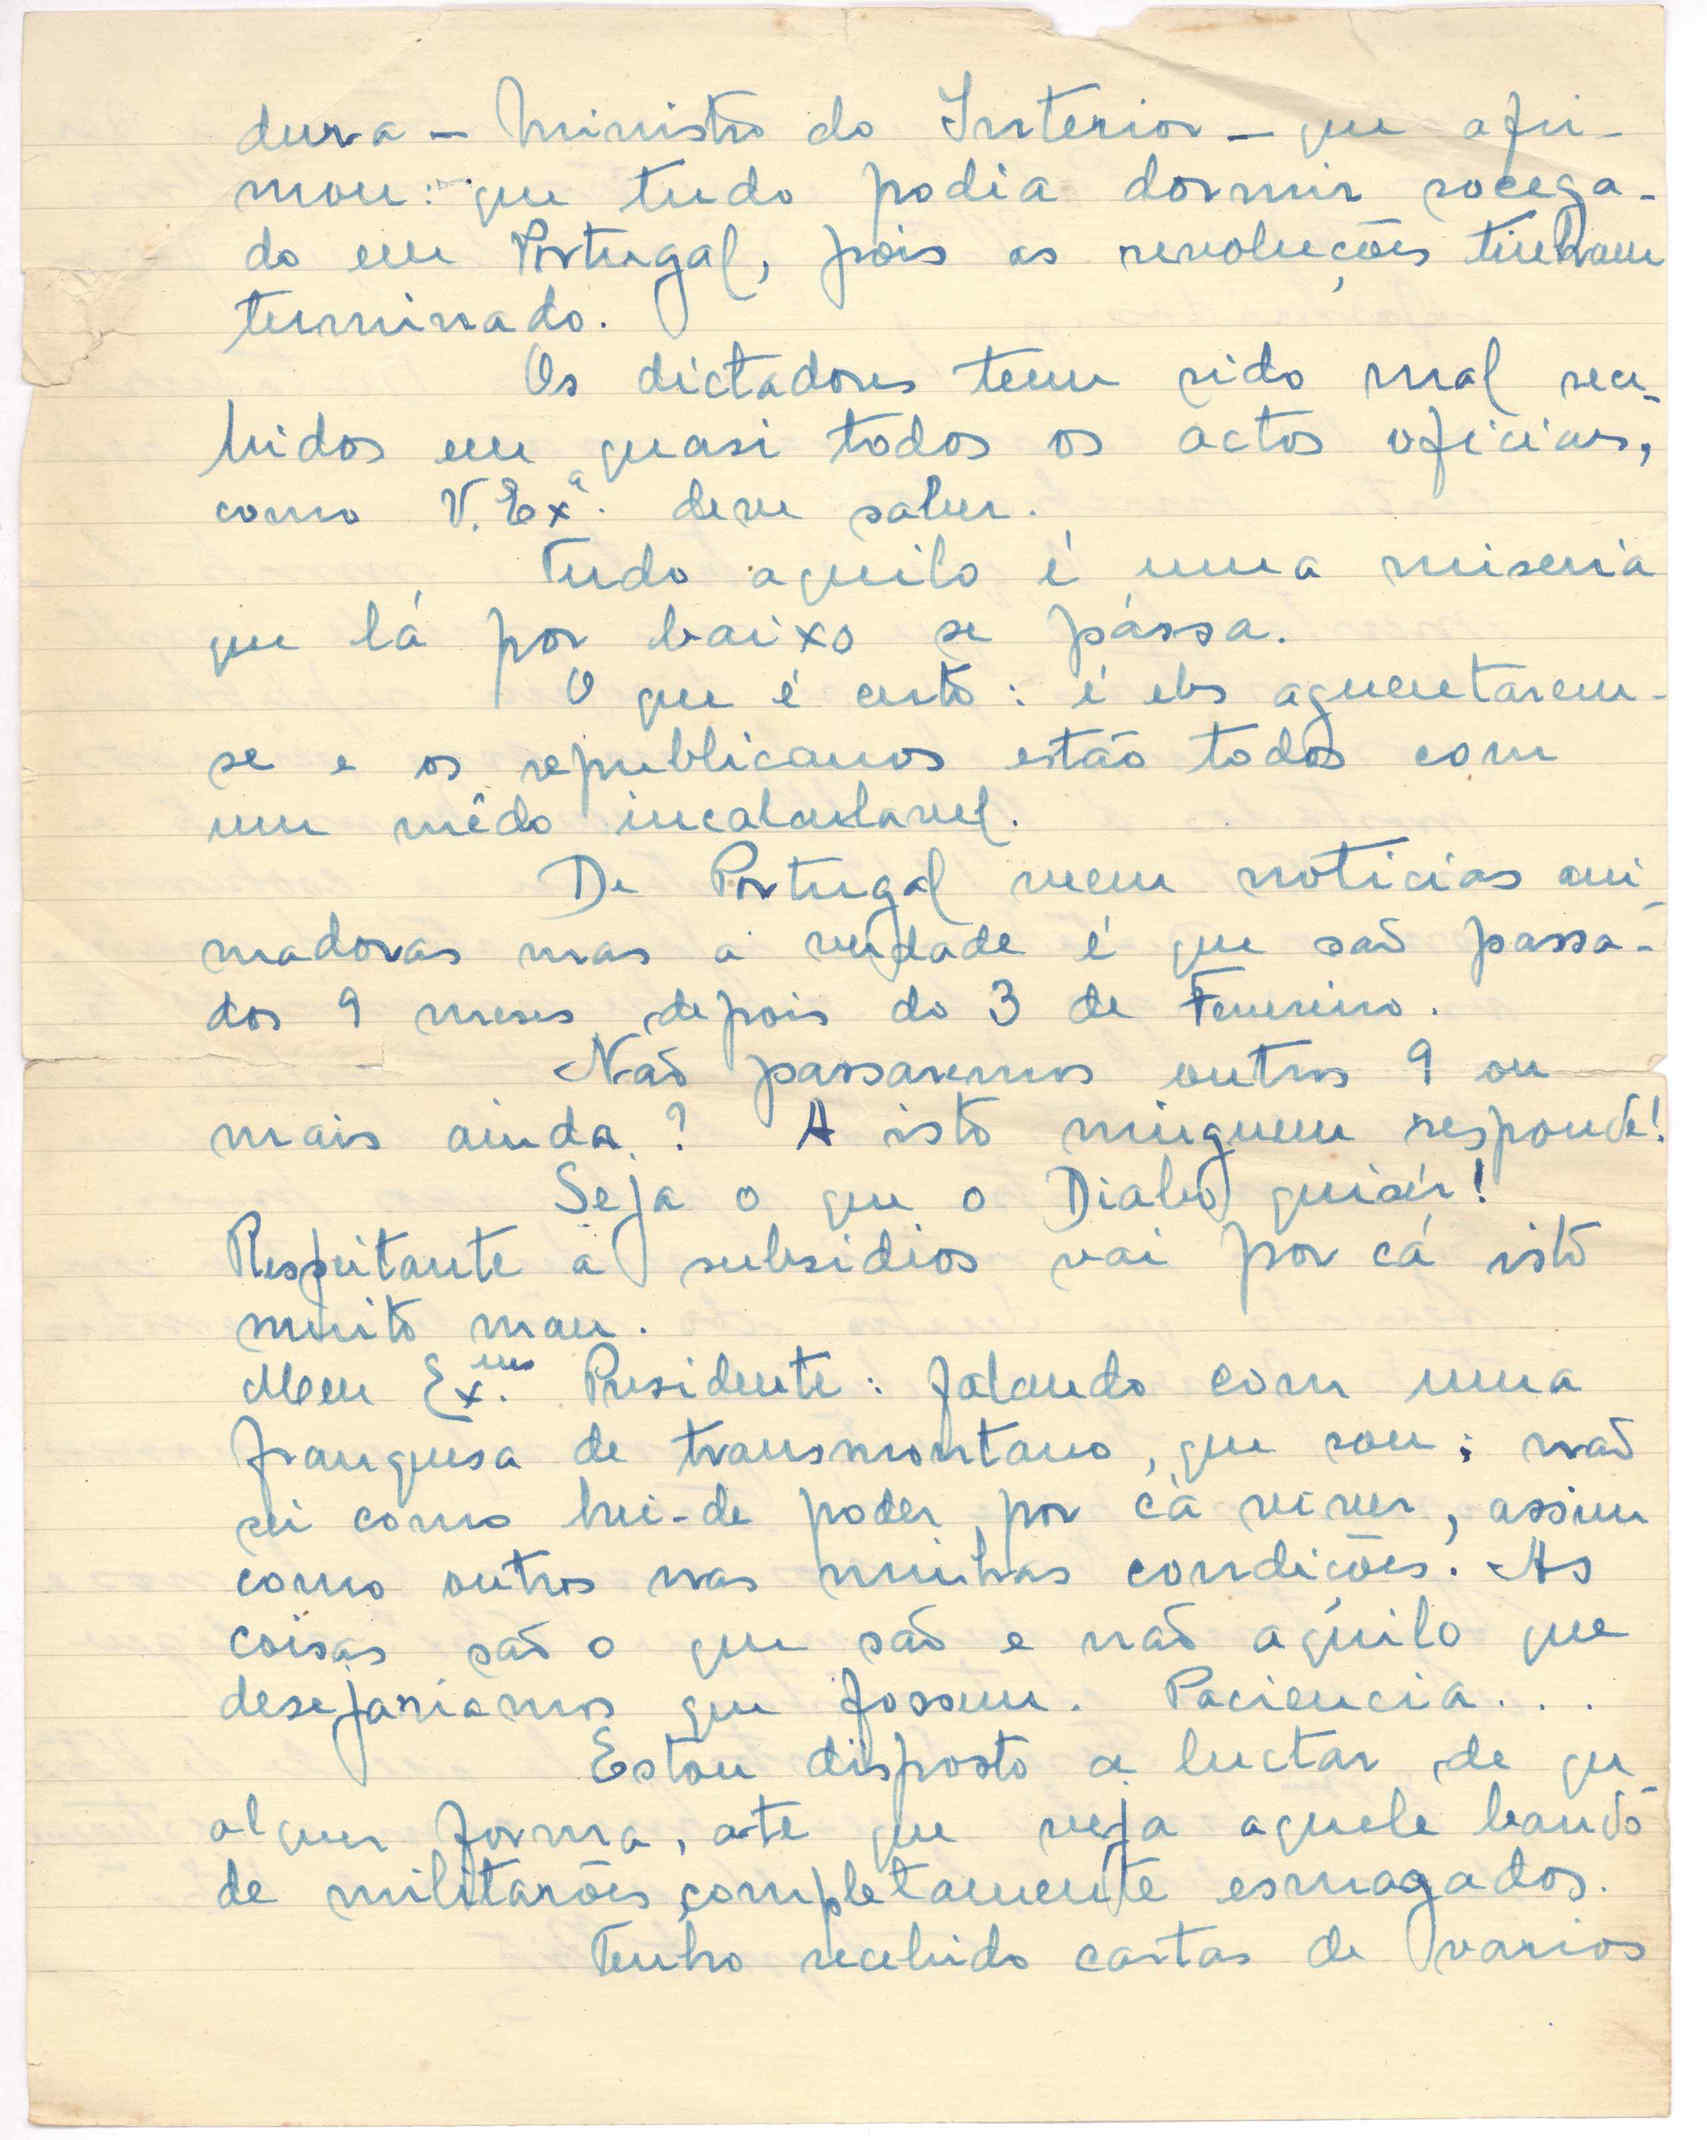 dura - Ministro do Interior - que afir-
mou: que tudo podia dormir socega-
do em Portugal, pois as revoluções tinham
terminado.
Os dictadores teem sido mal rece-
bidos em quasi todos os actos oficiaes,
como V. Exª. deve saber.
Tudo aquilo é uma miseria
que lá por baixo se pássa.
O que é certo: é eles aguentarem-
se e os republicanos estão todos com
um mêdo incalculavel.
De Portugal veem noticias ani-
madoras mas a verdade é que são passa-
dos 9 meses depois do 3 de Fevereiro.
Não passaremos outros 9 ou
mais ainda? A isto ninguem responde!
Seja o que o Diabo quisér!
Respeitante a subsidios vai por cá isto
muito mau.
Meu Ex.mo Presidente: falando com uma
franquesa de transmontano, que sou; não
sei como hei-de poder por cá viver, assim
como outros nas minhas condições. As
coisas são o que são e não aquilo que
desejariamos que fossem. Paciencia...
Estou disposto a luctar de qu-
alquer forma, até que veja aquele bando
de militarões completamente esmagados.
Tenho recebido cartas de varios